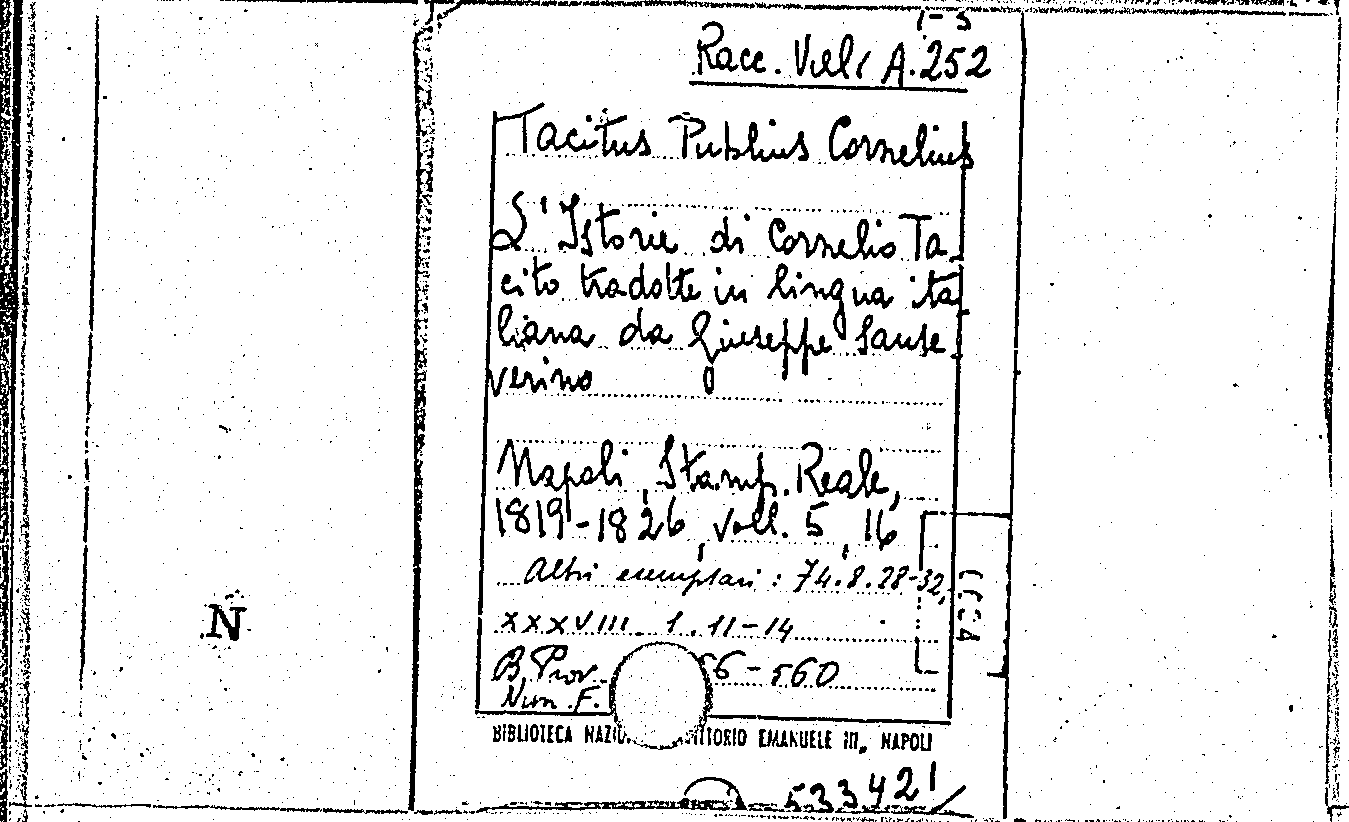 1-5
Racc. Vill. A. 252
Tacitus Publius Cornelius
L'Istorie di Cornelio Ta-
cito tradotte in lingua ita-
liana da Giuseppe Sanse-
verino
Napoli, Stamp. Reale,
1819-1826, voll. 5, 16
Altri esemplari: 74.8.28-32,
XXXVIII. 1. 11-14
N
B. Prov. 56-560
Num. F.
BIBLIOTECA EMANUELE III, NAPOLI
533421/